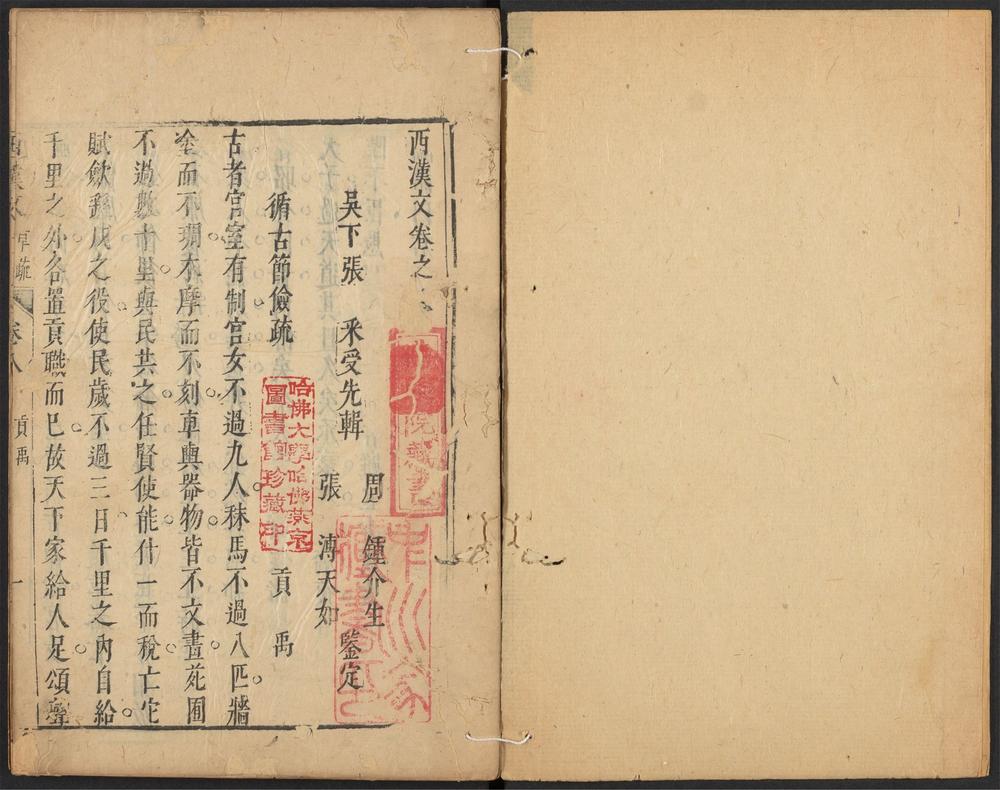 西漢文卷之
周 鍾介生
吳下張 釆受先輯
鑒定
張 溥天如
循古節儉疏 貢 禹
古者宮室有制宮女不過九人秣馬不過八匹牆
塗而不琱木摩而不刻車輿器物皆不文畫苑囿
不過數十里與民共之任賢使能什一而稅亡它
賦斂繇戍之役使民歲不過三日千里之內自給
千里之外各置貢職而已故天下家給人足頌聲
西漢文 卷八 貢禹 一
哈佛大學哈佛燕京
圖書館珍藏印